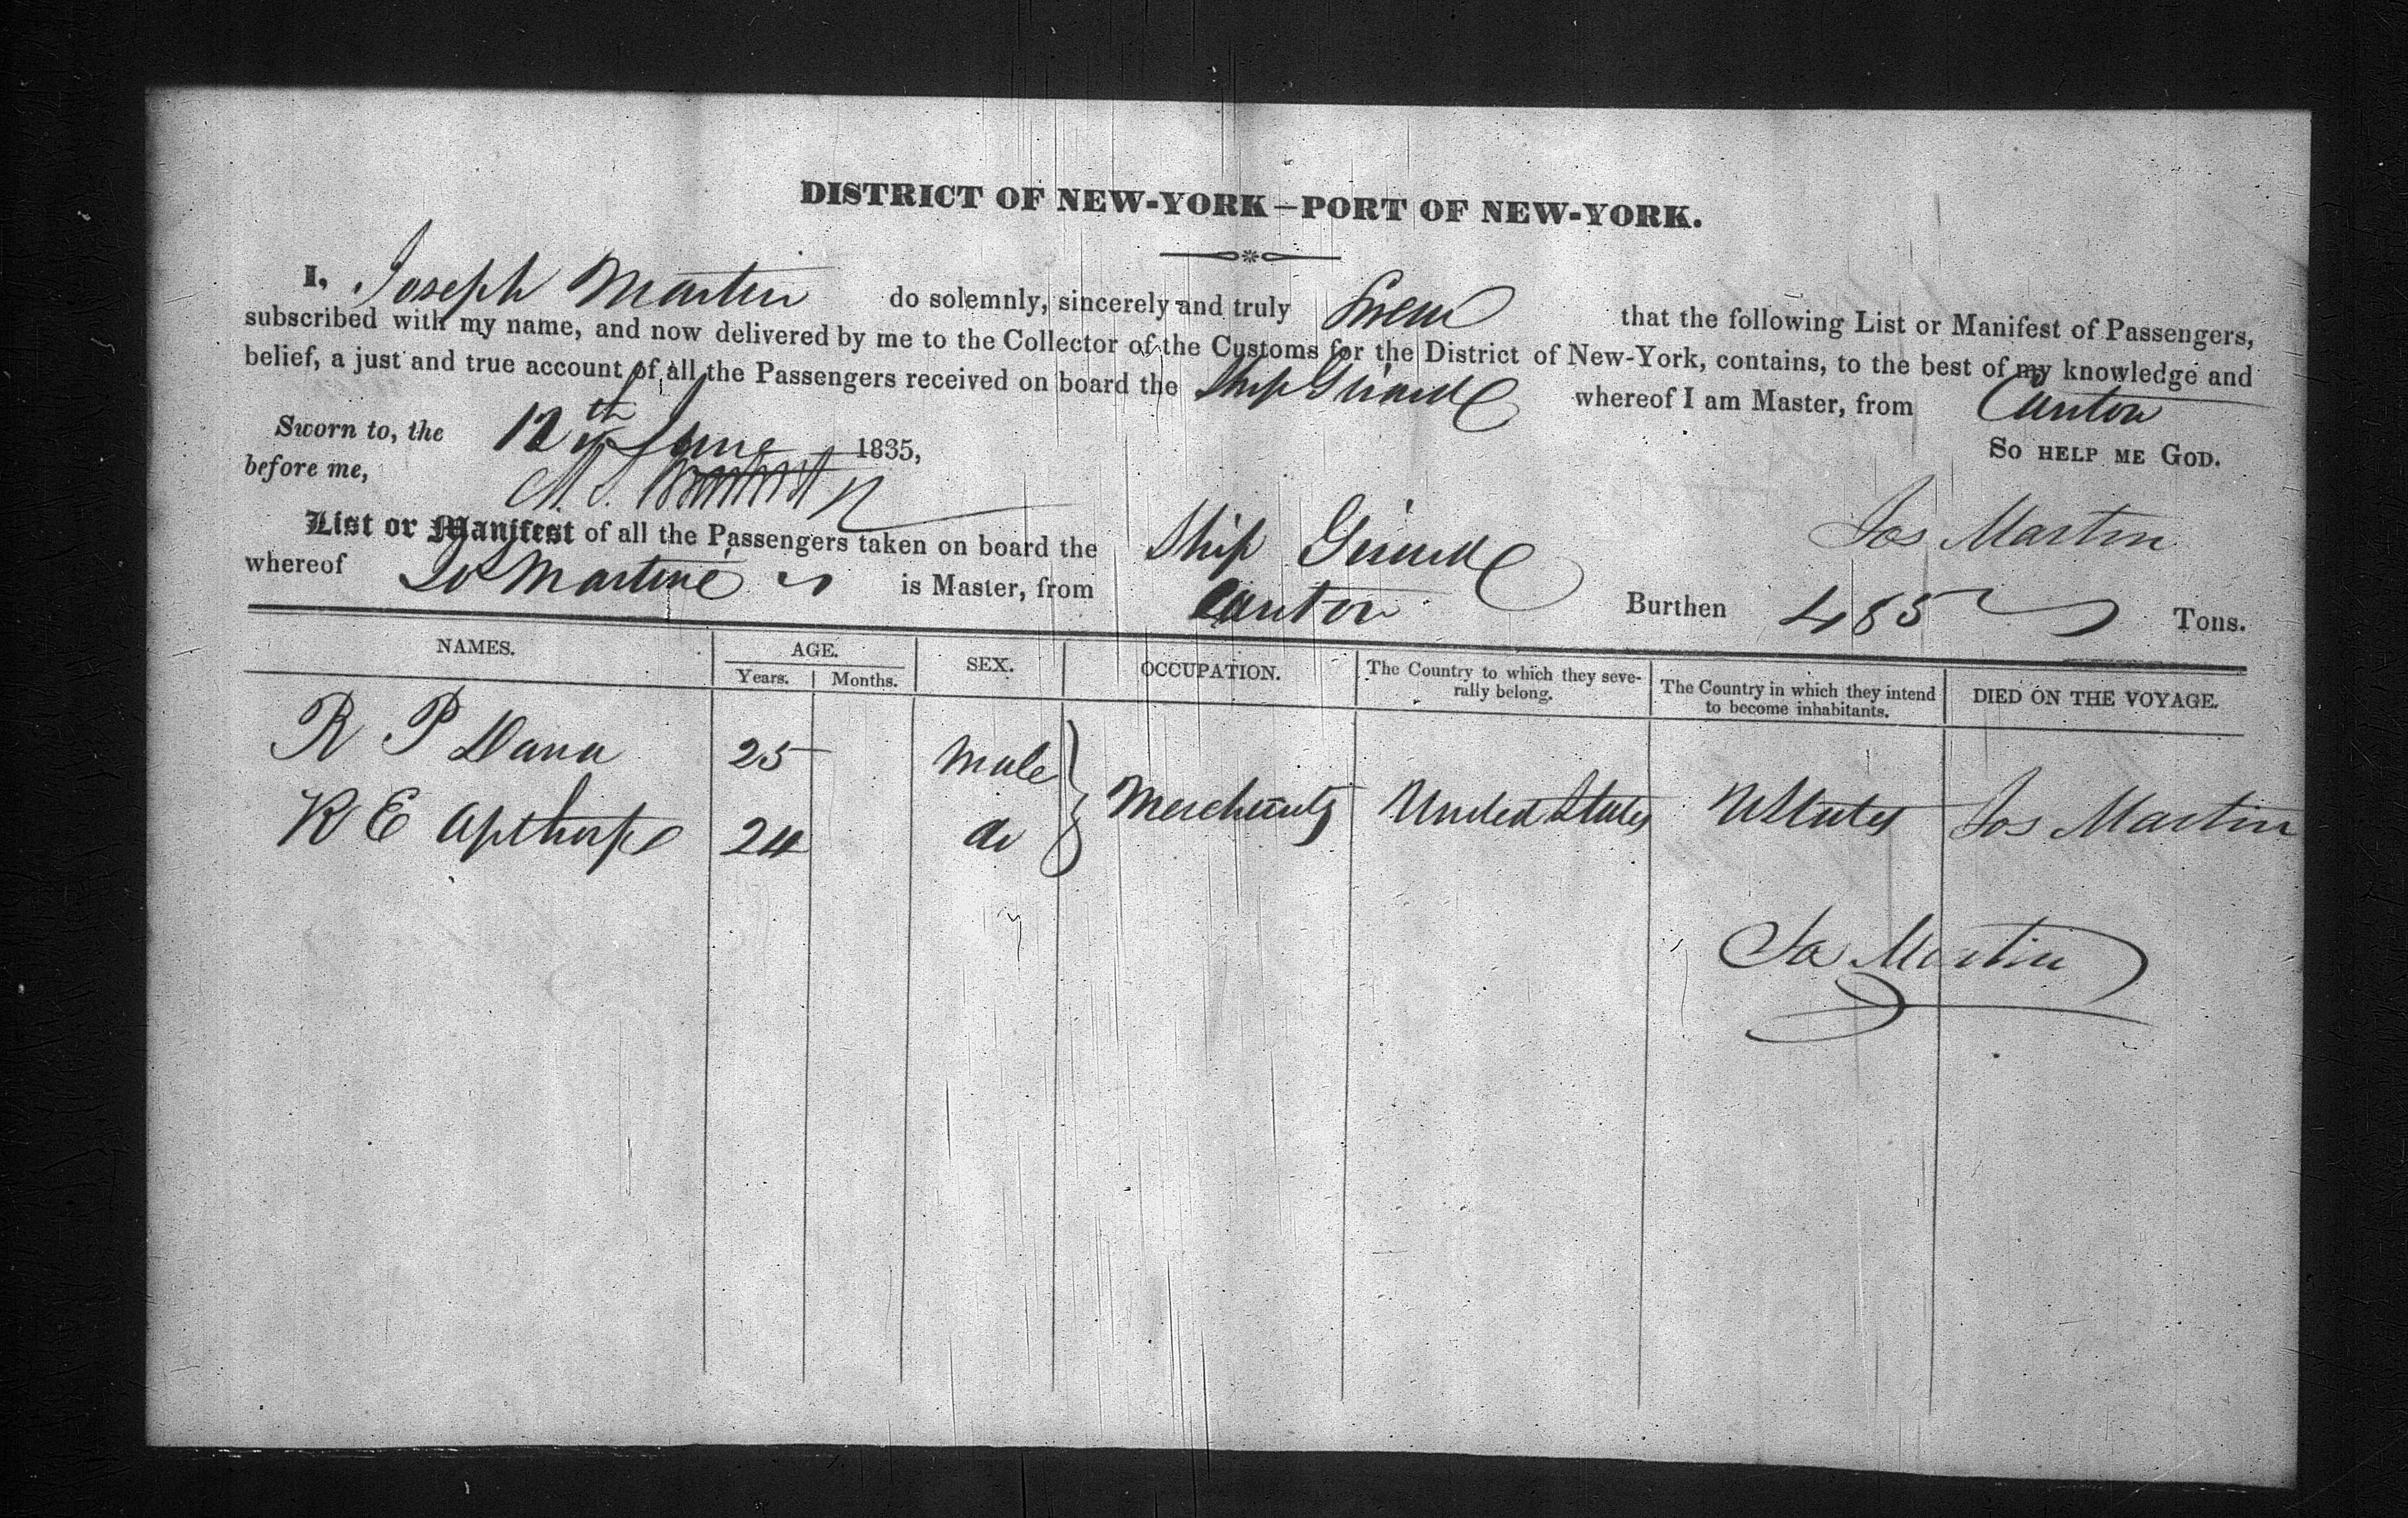 DISTRICT OF NEW-YORK—PORT OF NEW-YORK.
I, Joseph Martin do solemnly, sincerely and truly Swear that the following List or Manifest of Passengers,
subscribed with my name, and now delivered by me to the Collector of the Customs for the District of New-York, contains, to the best of my knowledge and
belief, a just and true account of all the Passengers received on board the Ship Girard whereof I am Master, from Canton
Sworn to, the 12th June 1835, So HELP ME GOD.
before me,
Jos Martin
List or Manifest of all the Passengers taken on board the Ship Girard
whereof Martin is Master, from Canton Burthen 485 Tons.
NAMES. AGE. SEX. OCCUPATION. The Country to which they seve- The Country in which they intend DIED ON THE VOYAGE.
Years. Months. rally belong. to become inhabitants.
R P Dana 25 Male
Merchants United States UStates Jos Martin
R E Apthorp 24 do
Jos Martin